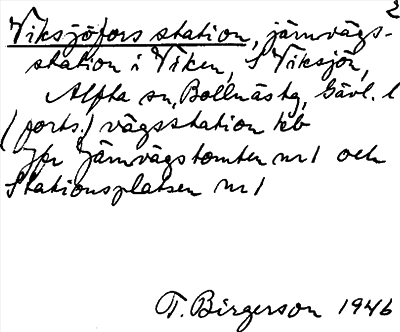 2
Viksjöfors station, järnvägs-
station i Viken, S Viksjön,
Alfta sn, Bollnäs tg, Gävl. l
(forts.) vägsstation kb
Jfr Järnvägstomten nr 1 och
Stationsplatsen nr 1
T. Birgerson 1946